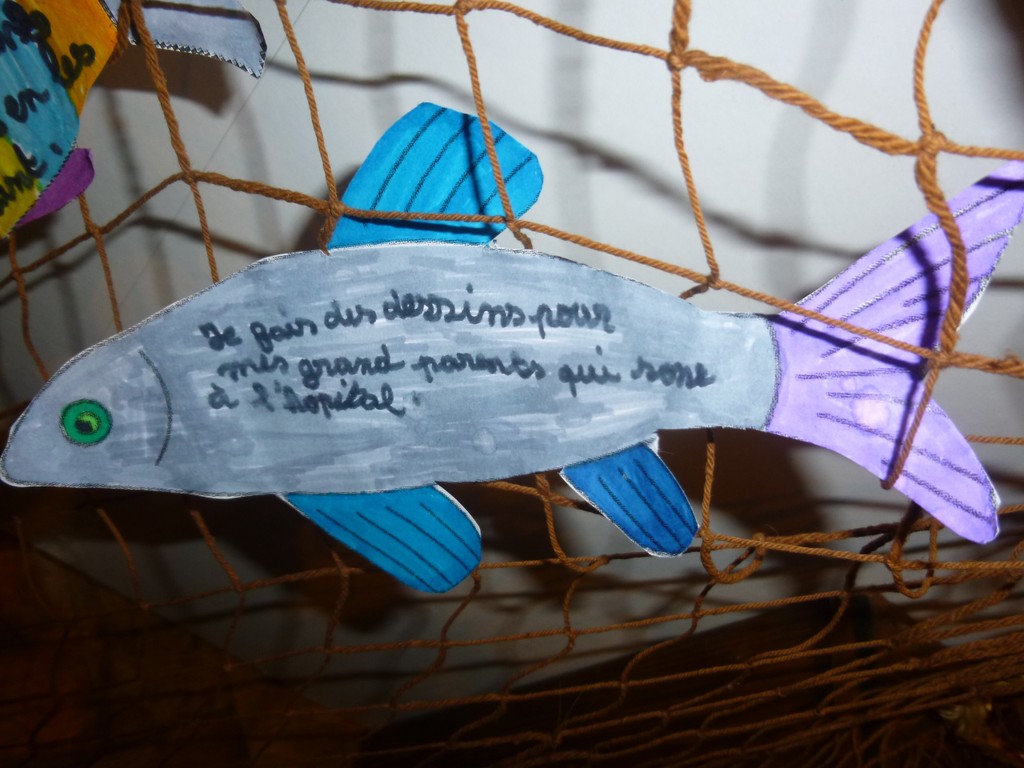 en
Je fais des dessins pour
mes grand parents qui sone
à l'hopital.